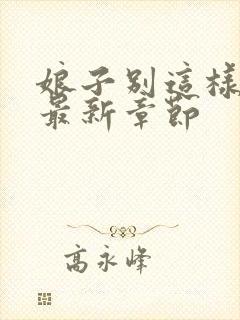 娘子別這樣
最新章節
高永峰